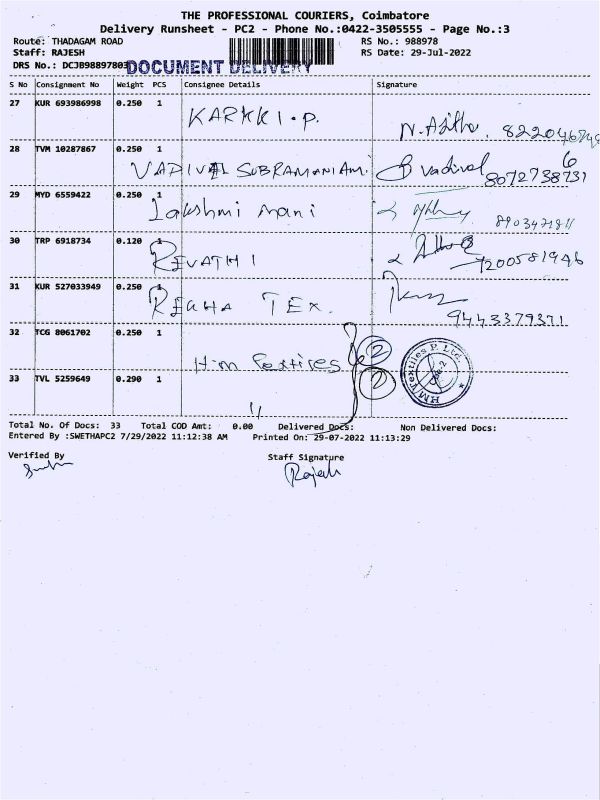 THE PROFESSIONAL COURIERS, Coimbatore
Delivery Runsheet - PC2 - Phone No.:0422-3505555 - Page No.:3
Route: THADAGAM ROAD RS No.: 988978
Staff: RAJESH RS Date: 29-Jul-2022
DRS No.: DCJB98897803 DOCUMENT DELIVERY
S No Consignment No Weight PCS Consignee Details Signature
27 KUR 693986998 0.250 1 KARKKI.P.
28 TVM 10287867 0.250 1 VADIVEL SUBRAMANIAM Vadivel
8072738731
29 MYD 6559422 0.250 1 Lakshmi mani
30 TRP 6918734 0.120 1 REVATHI
7200581946
31 KUR 527033949 0.250 1 REGHA TEX.
9443379371
32 TCG 8061702 0.250 1 Hm Textiles 2
HM Textiles P. Ltd.
33 TVL 5259649 0.290 1 " 2
Total No. Of Docs: 33 Total COD Amt: 0.00 Delivered Docs: Non Delivered Docs:
Entered By :SWETHAPC2 7/29/2022 11:12:38 AM Printed On: 29-07-2022 11:13:29
Verified By Staff Signature
Rajesh